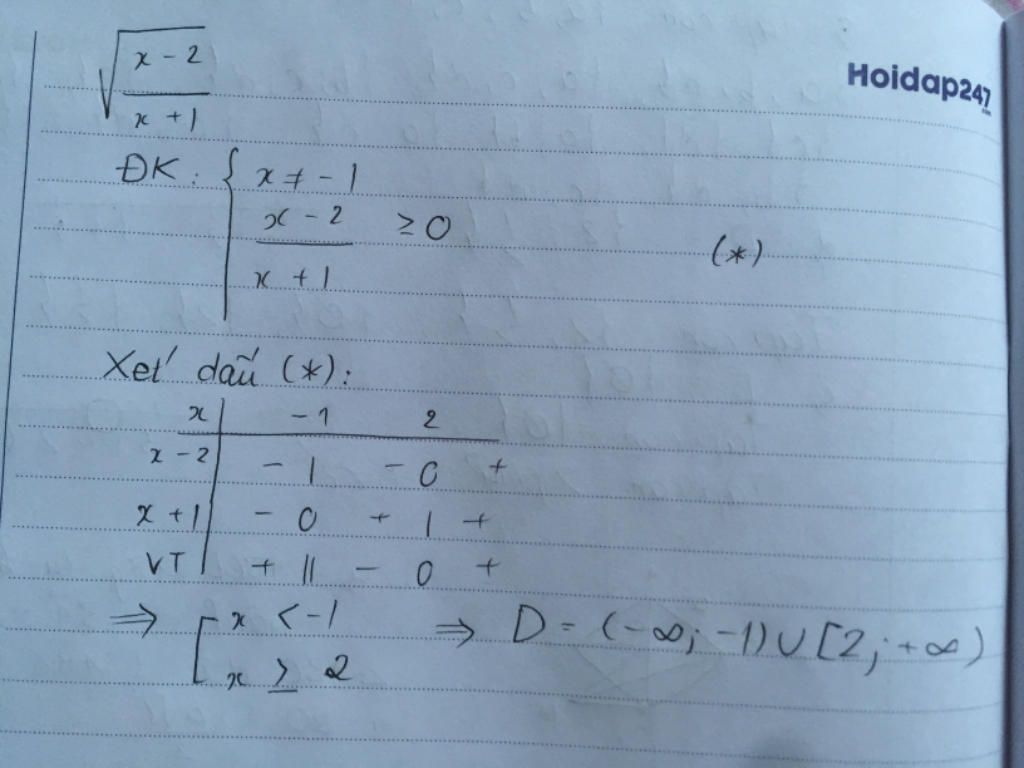 √((x - 2)/(x + 1))
Hoidap247
.com
ĐK: { x ≠ -1
(x - 2)/(x + 1) ≥ 0 (*)
Xét dấu (*):
x | -1 2
x - 2 | - | - 0 +
x + 1 | - 0 + | +
VT | + || - 0 +
⇒ [ x < -1
x ≥ 2 ⇒ D = (-∞; -1) ∪ [2; +∞)